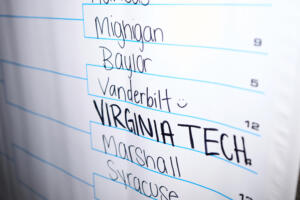 Mighigan
9
Baylor
5
Vanderbilt
12
VIRGINIA TECH
Marshall
Syracuse